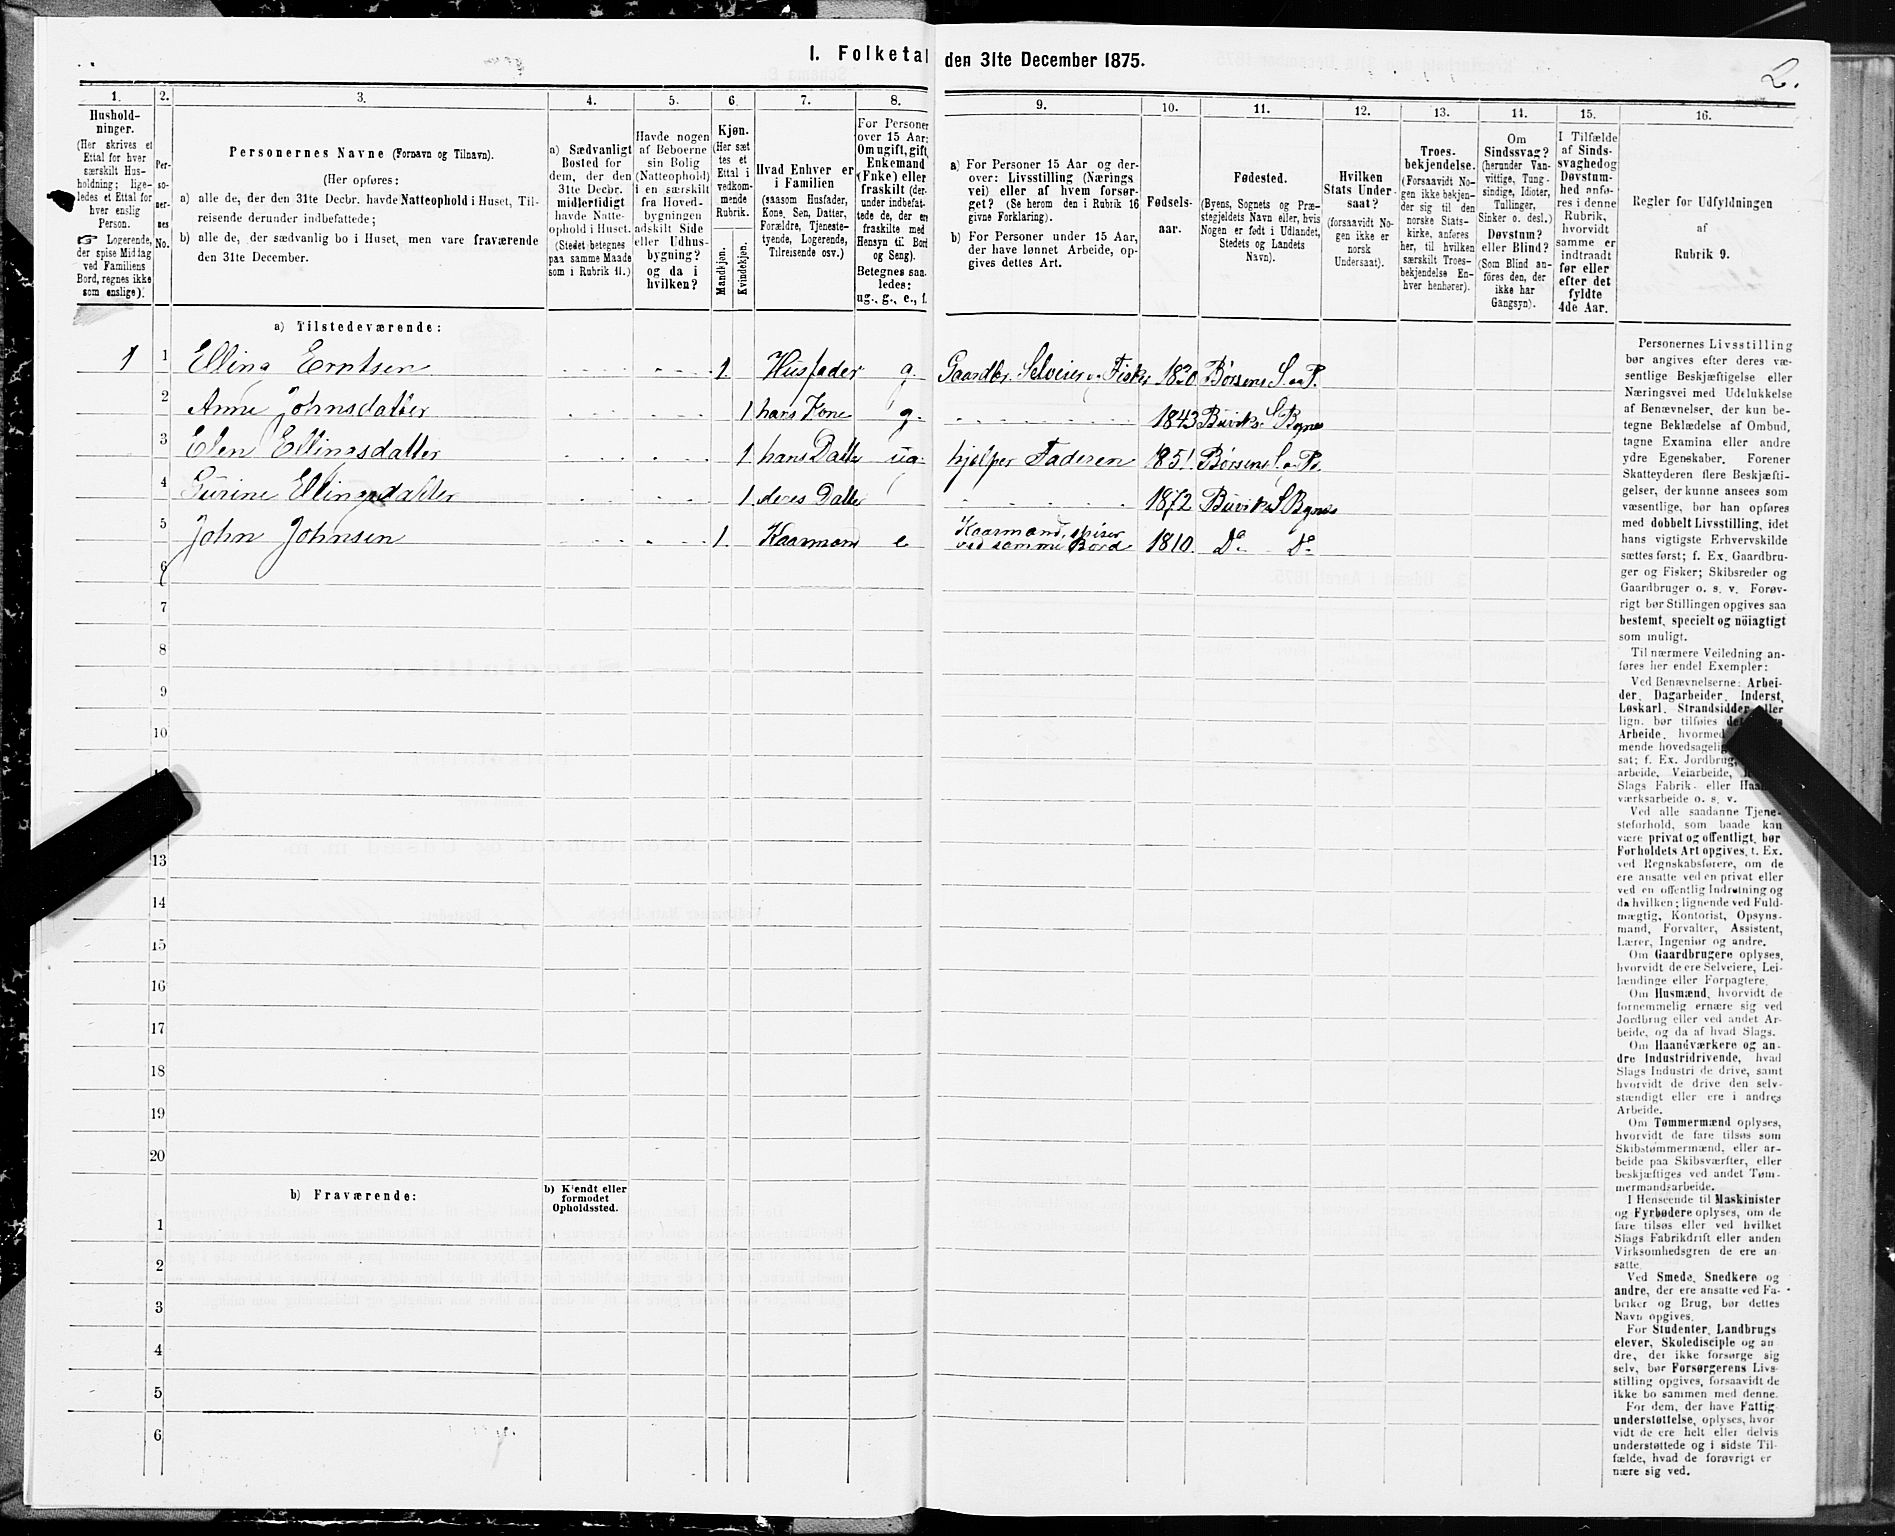 I. Folketal den 31te December 1875.
2.
1.
Hushold-
ninger.
(Her skrives et
Ettal for hver
særskilt Hus-
holdning; lige-
ledes et Ettal for
hver enslig
Person.
☞ Logerende,
der spise Middag
ved Familiens
Bord, regnes ikke
som enslige).
2.
Per-
so-
ner-
nes
No.
3.
Personernes Navne (Fornavn og Tilnavn).
(Her opføres:
a) alle de, der den 31te Decbr. havde Natteophold i Huset, Til-
reisende derunder indbefattede;
b) alle de, der sædvanlig bo i Huset, men vare fraværende
den 31te December.
4.
a) Sædvanligt
Bosted for
dem, der den
31te Decbr.
midlertidigt
havde Natte-
ophold i Huset.
(Stedet betegnes
paa samme Maade
som i Rubrik 11.)
5.
Havde nogen
af Beboerne
sin Bolig
(Natteophold)
i en særskilt
fra Hoved-
bygningen
adskilt Side
eller Udhus-
bygning?
og da i
hvilken?
6.
Kjøn.
(Her sæt
tes et
Ettal i
vedkom-
mende
Rubrik.
Mandkjøn.
Kvindekjøn.
7.
Hvad Enhver er
i Familien
(saasom Husfader,
Kone, Søn, Datter,
Forældre, Tjeneste-
tyende, Logerende,
Tilreisende osv.)
8.
For Personer
over 15 Aar:
Om ugift, gift,
Enkemand
(Enke) eller
fraskilt (der-
under indbefat-
tede de, der er
fraskilte med
Hensyn til Bord
og Seng).
Betegnes saa-
ledes:
ug., g., e., f.
9.
a) For Personer 15 Aar og der-
over: Livsstilling (Nærings
vei) eller af hvem forsør-
get? (Se herom den i Rubrik 16
givne Forklaring).
b) For Personer under 15 Aar,
der have lønnet Arbeide, op-
gives dettes Art.
10.
Fødsels-
aar.
11.
Fødested.
(Byens, Sognets og Præ-
stegjeldets Navn eller, hvis
Nogen er født i Udlandet,
Stedets og Landets
Navn).
12.
Hvilken
Stats Under-
saat?
(forsaavidt No-
gen ikke er
norsk
Undersaat).
13.
Troes-
bekjendelse.
(Forsaavidt No-
gen ikke bekjen-
der sig til den
norske Stats-
kirke, anføres
her, til hvilken
særskilt Troes-
bekjendelse En-
hver henhører).
14.
Om
Sindssvag?
(herunder Van-
vittige, Tung-
sindige, Idioter,
Tullinger,
Sinker o. desl.)
Døvstum?
eller Blind?
(Som Blind an-
føres den, der
ikke har
Gangsyn).
15.
I Tilfælde
af Sinds-
svaghedog
Døvstum-
hed anfø-
res i denne
Rubrik,
hvorvidt
samme er
indtraadt
før eller
efter det
fyldte
4de Aar.
16.
Regler for Udfyldningen
af
Rubrik 9.
a) Tilstedeværende:
1 1 Elling Erntsen 1 Husfader g. Gaardbr. Selveier o. Fisker 1820 Børsens S. o. P.
2 Anne Johnsdatter 1 hans Kone g. 1843 Buviks S Bgnes
3 Elen Ellingsdatter 1 hans Datte ug. hjelper Faderen 1851 Børsens S. o. P.
4 Gurine Ellingsdatter 1 deres Datte 1872 Buviks S Bgnes
5 John Johnsen 1 Kaarmand e Kaarmand, spiser
ved samme Bord 1810. Do. Do.
6
7
8
9
10
13
14
15
16
17
18
19
20
b) Fraværende:
b) Kjendt eller
formodet
Opholdssted.
1
2
3
4
5
6
Personernes Livsstilling
bør angives efter deres væ-
sentlige Beskjæftigelse eller
Næringsvei med Udelukkelse
af Benævnelser, der kun be-
tegne Beklædelse af Ombud,
tagne Examina eller andre
ydre Egenskaber. Forener
Skatteyderen flere Beskjæfti-
gelser, der kunne ansees som
væsentlige, bør han opføres
med dobbelt Livsstilling, idet
hans vigtigste Erhvervskilde
sættes først; f. Ex. Gaardbru-
ger og Fisker; Skibsreder og
Gaardbruger o. s. v. Forøv-
rigt bør Stillingen opgives saa
bestemt, specielt og nöiagtigt
som muligt.
Til nærmere Veiledning an-
føres her endel Exempler:
Ved Benævnelserne: Arbei-
der, Dagarbeider, Inderst,
Løskarl, Strandsidder eller
lign. bør tilføies
Arbeide, hvormed
mende hovedsagelig
sat; f. Ex. Jordbrug,
arbeide, Veiarbeide,
Slags Fabrik- eller Haand-
værksarbeide o. s. v.
Ved alle saadanne Tjene-
steforhold, som baade kan
være privat og offentligt, bør
Forholdets Art opgives, t. Ex.
ved Regnskabsførere, om de
ere ansatte ved en privat eller
ved en offentlig Indretning og
da hvilken; lignende ved Fuld-
mægtig, Kontorist, Opsyns-
mand, Forvalter, Assistent,
Lærer, Ingeniør og andre.
Om Gaardbrugere oplyses,
hvorvidt de ere Selveiere, Lei-
lændinge eller Forpagtere.
Om Husmænd, hvorvidt de
fornemmelig ernære sig ved
Jordbrug eller ved andet Ar-
beide, og da af hvad Slags.
Om Haandværkere og an-
dre Industridrivende, hvad
Slags Industri de drive, samt
hvorvidt de drive den selv-
stændigt eller ere i andres
Arbeide.
Om Tømmermænd oplyses,
hvorvidt de fare tilsøs som
Skibstømmermænd, eller ar-
beide paa Skibsværfter, eller
beskjæftiges ved andet Tøm-
mermandsarbeide.
I Henseende til Maskinister
og Fyrbødere oplyses, om de
fare tilsøs eller ved hvilket
Slags Fabrikdrift eller anden
Virksomhedsgren de ere an-
satte.
Ved Smede, Snedkere og
andre, der ere ansatte ved Fa-
briker og Brug, bør dettes
Navn opgives.
For Studenter, Landbrugs
elever, Skoledisciple og an
dre, der ikke forsørge sig
selv, bør Forsørgerens Livs-
stilling opgives, forsaavidt de
ikke bo sammen med denne.
For dem, der have Fattig-
understøttelse, oplyses, hvor
vidt de ere helt eller delvis
understøttede og i sidste Til-
fælde, hvad de forøvrigt er
nære sig ved.